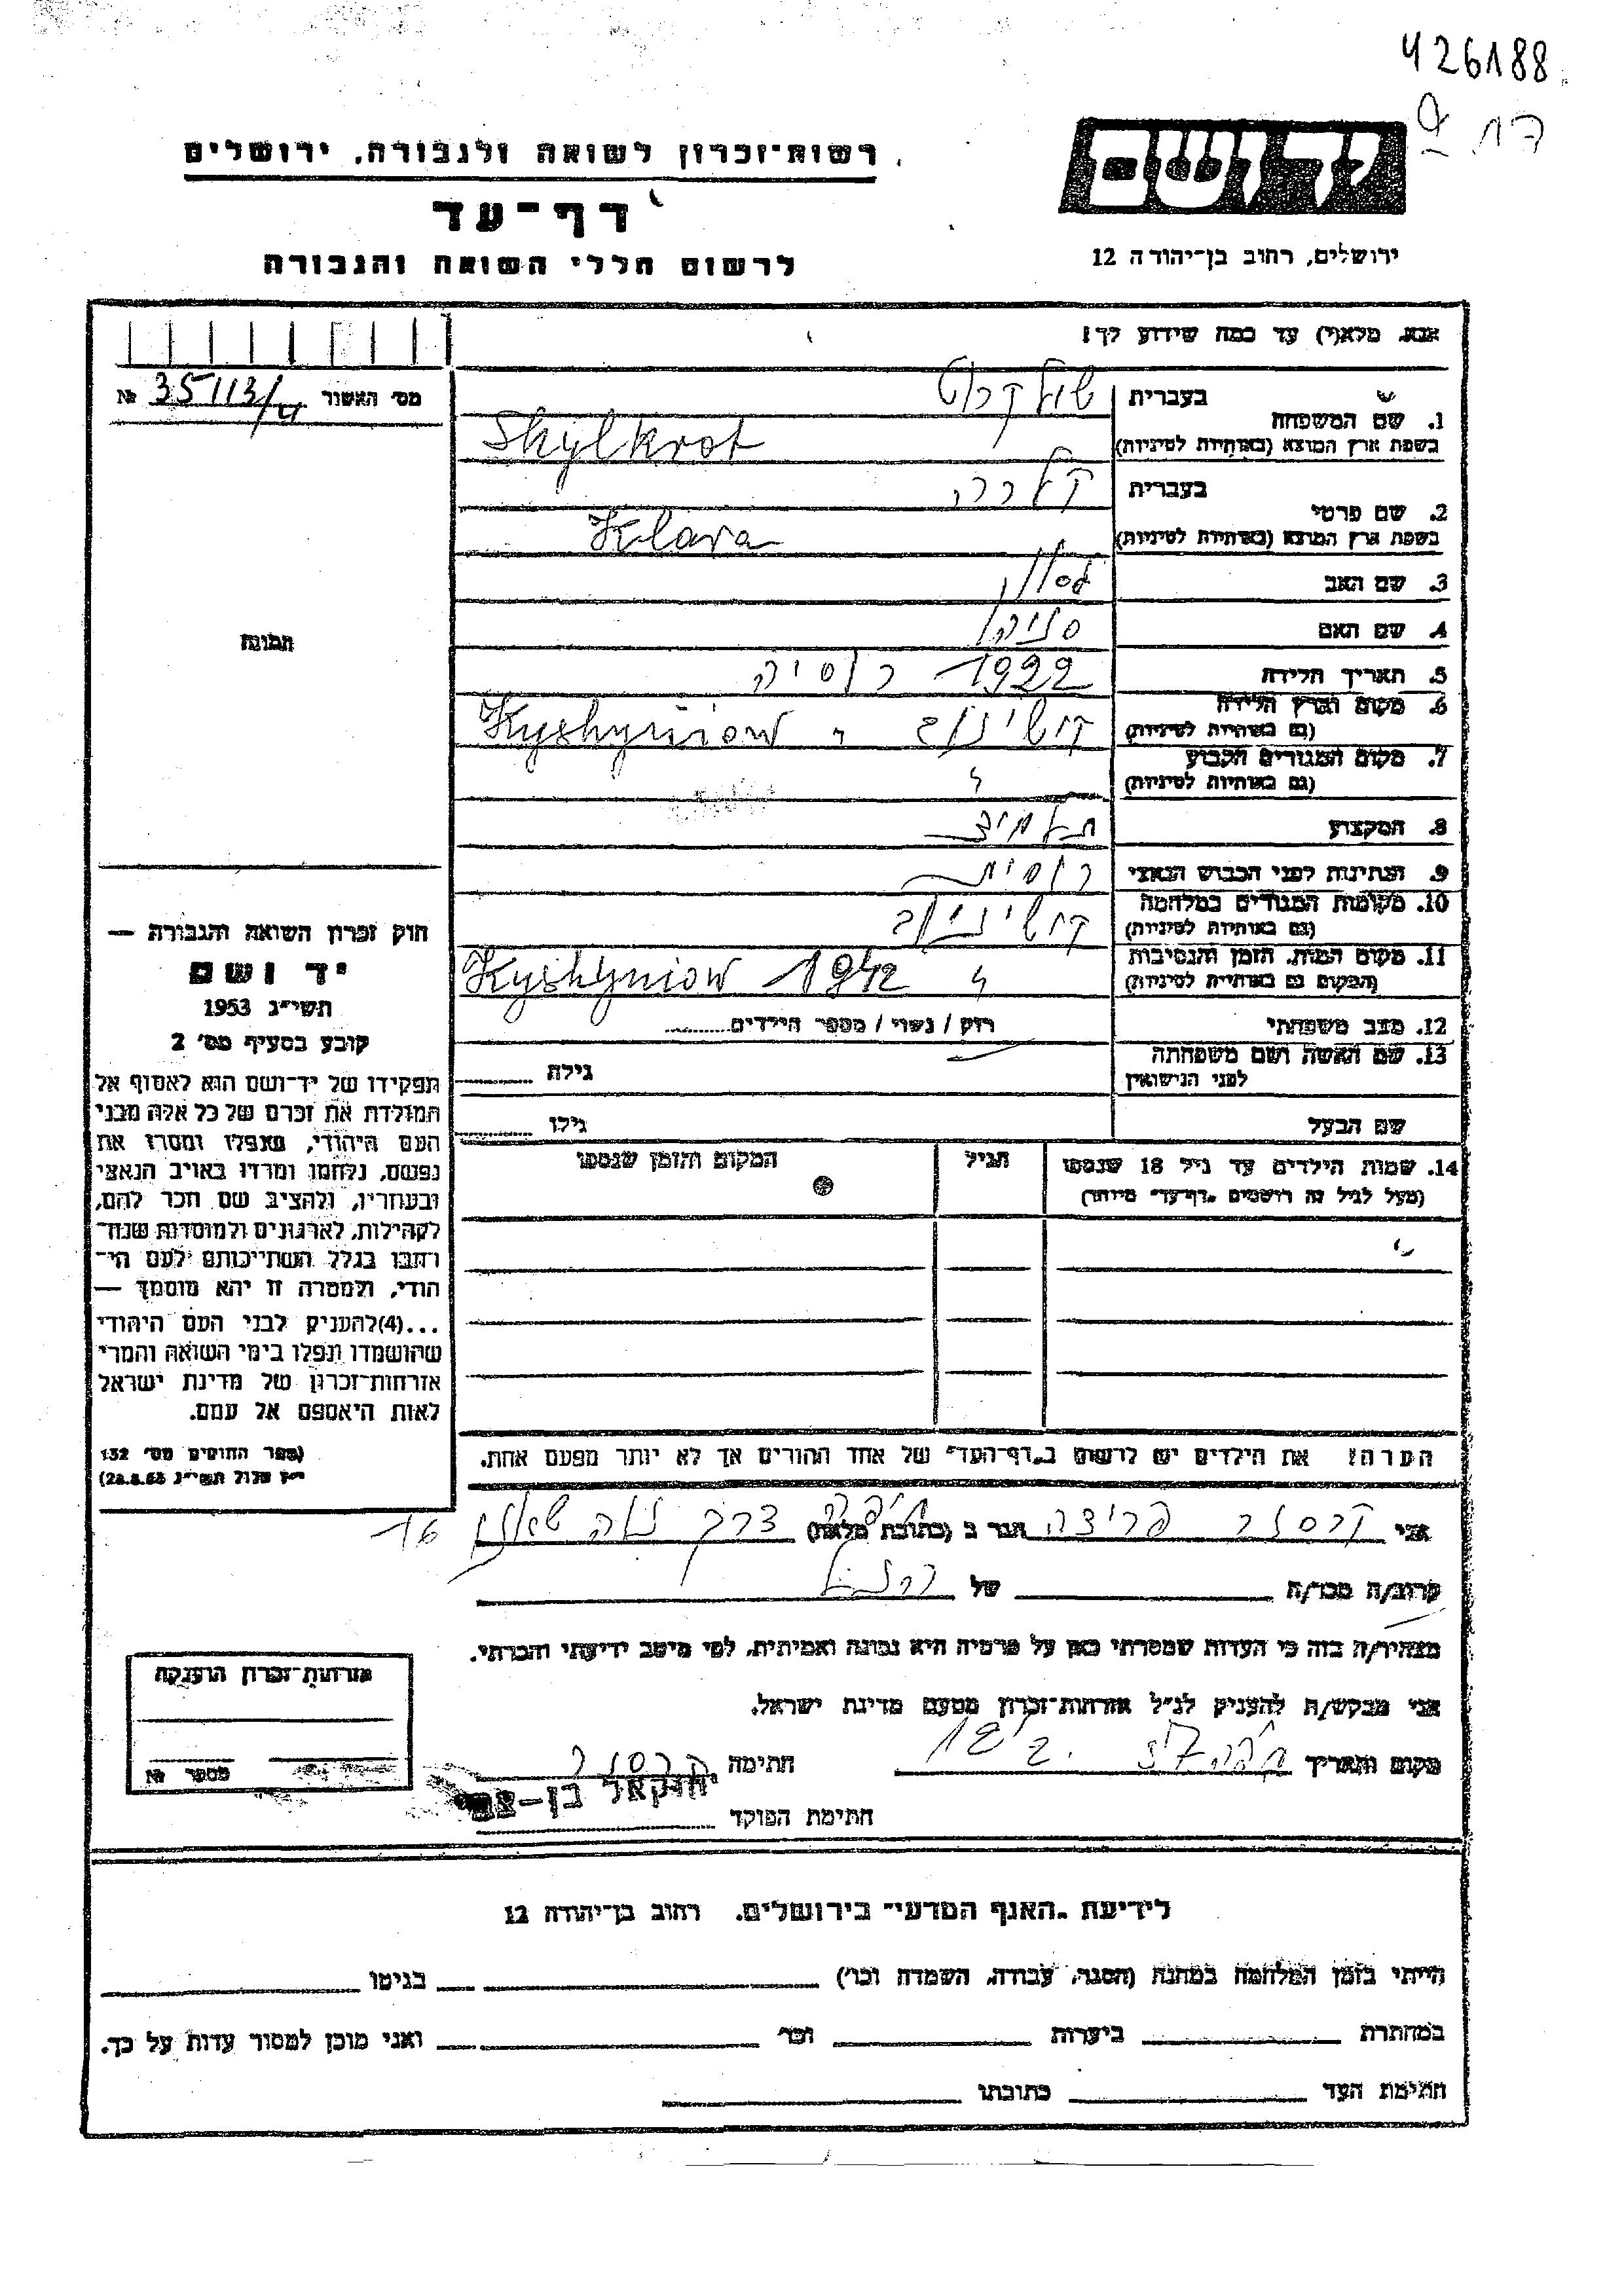 426188
יד ושם
רשות-זכרון לשואה ולגבורה, ירושלים
דף-עד
לרשום חללי השואה והגבורה
ירושלים, רחוב בן-יהודה 12
אנא, מלא(י) עד כמה שידוע לך!
מס' האשור № 35113/
1. שם המשפחה
בעברית
בשפת ארץ המוצא (באותיות לטיניות) Skylkrot
2. שם פרטי
בעברית קלרה
בשפת ארץ המוצא (באותיות לטיניות) Klara
3. שם האב
4. שם האם סוניה
5. תאריך הלידה 1922 רוסיה
6. מקום וארץ הלידה (גם באותיות לטיניות) קושינוב - Kyshyniow
7. מקום המגורים הקבוע (גם באותיות לטיניות) "
8. המקצוע
9. הנתינות לפני הכבוש הנאצי רוסית
10. מקומות המגורים במלחמה (גם באותיות לטיניות) קושינוב
11. מקום המות, הזמן והנסיבות (המקום גם באותיות לטיניות) " Kyshyniow 1942
12. מצב משפחתי רוק / נשוי / מספר הילדים
13. שם האשה ושם משפחתה לפני הנישואין גילה
שם הבעל גילו
14. שמות הילדים עד גיל 18 שנספו
(מעל לגיל זה רושמים "דף-עד" מיוחד)
הגיל
המקום והזמן שנספו
תמונה
חוק זכרון השואה והגבורה —
יד ושם
תשי"ג 1953
קובע בסעיף מס' 2
תפקידו של יד-ושם הוא לאסוף אל
המולדת את זכרם של כל אלה מבני
העם היהודי, שנפלו ומסרו את
נפשם, נלחמו ומרדו באויב הנאצי
ובעוזריו, ולהציב שם וזכר להם,
לקהילות, לארגונים ולמוסדות שנח-
רבו בגלל השתייכותם לעם הי-
הודי, ולמטרה זו יהא מוסמך —
...(4)להעניק לבני העם היהודי
שהושמדו ונפלו בימי השואה והמרי
אזרחות-זכרון של מדינת ישראל
לאות היאספם אל עמם.
(ספר החוקים מס' 132
י"ז אלול תשי"ג 28.8.53)
הערה! את הילדים יש לרשום ב"דף-העד" של אחד ההורים אך לא יותר מפעם אחת.
אני קרסלר פרידה הגר ב (כתובת מלאה) חיפה דרך נוה שאנן 16
קרוב/ה מכר/ה של
מצהיר/ה בזה כי העדות שמסרתי כאן על פרטיה היא נכונה ואמיתית, לפי מיטב ידיעתי והכרתי.
אני מבקש/ת להעניק לנ"ל אזרחות-זכרון מטעם מדינת ישראל.
מקום ותאריך חתימה
חתימת הפוקד יחזקאל בן-צבי
אזרחות-זכרון הוענקה
מספר №
לידיעת "האגף המדעי" בירושלים, רחוב בן-יהודה 12
הייתי בזמן המלחמה במחנה (הסגר, עבודה, השמדה וכו') בגיטו
במחתרת ביערות וכו' ואני מוכן למסור עדות על כך.
חתימת העד כתובתו